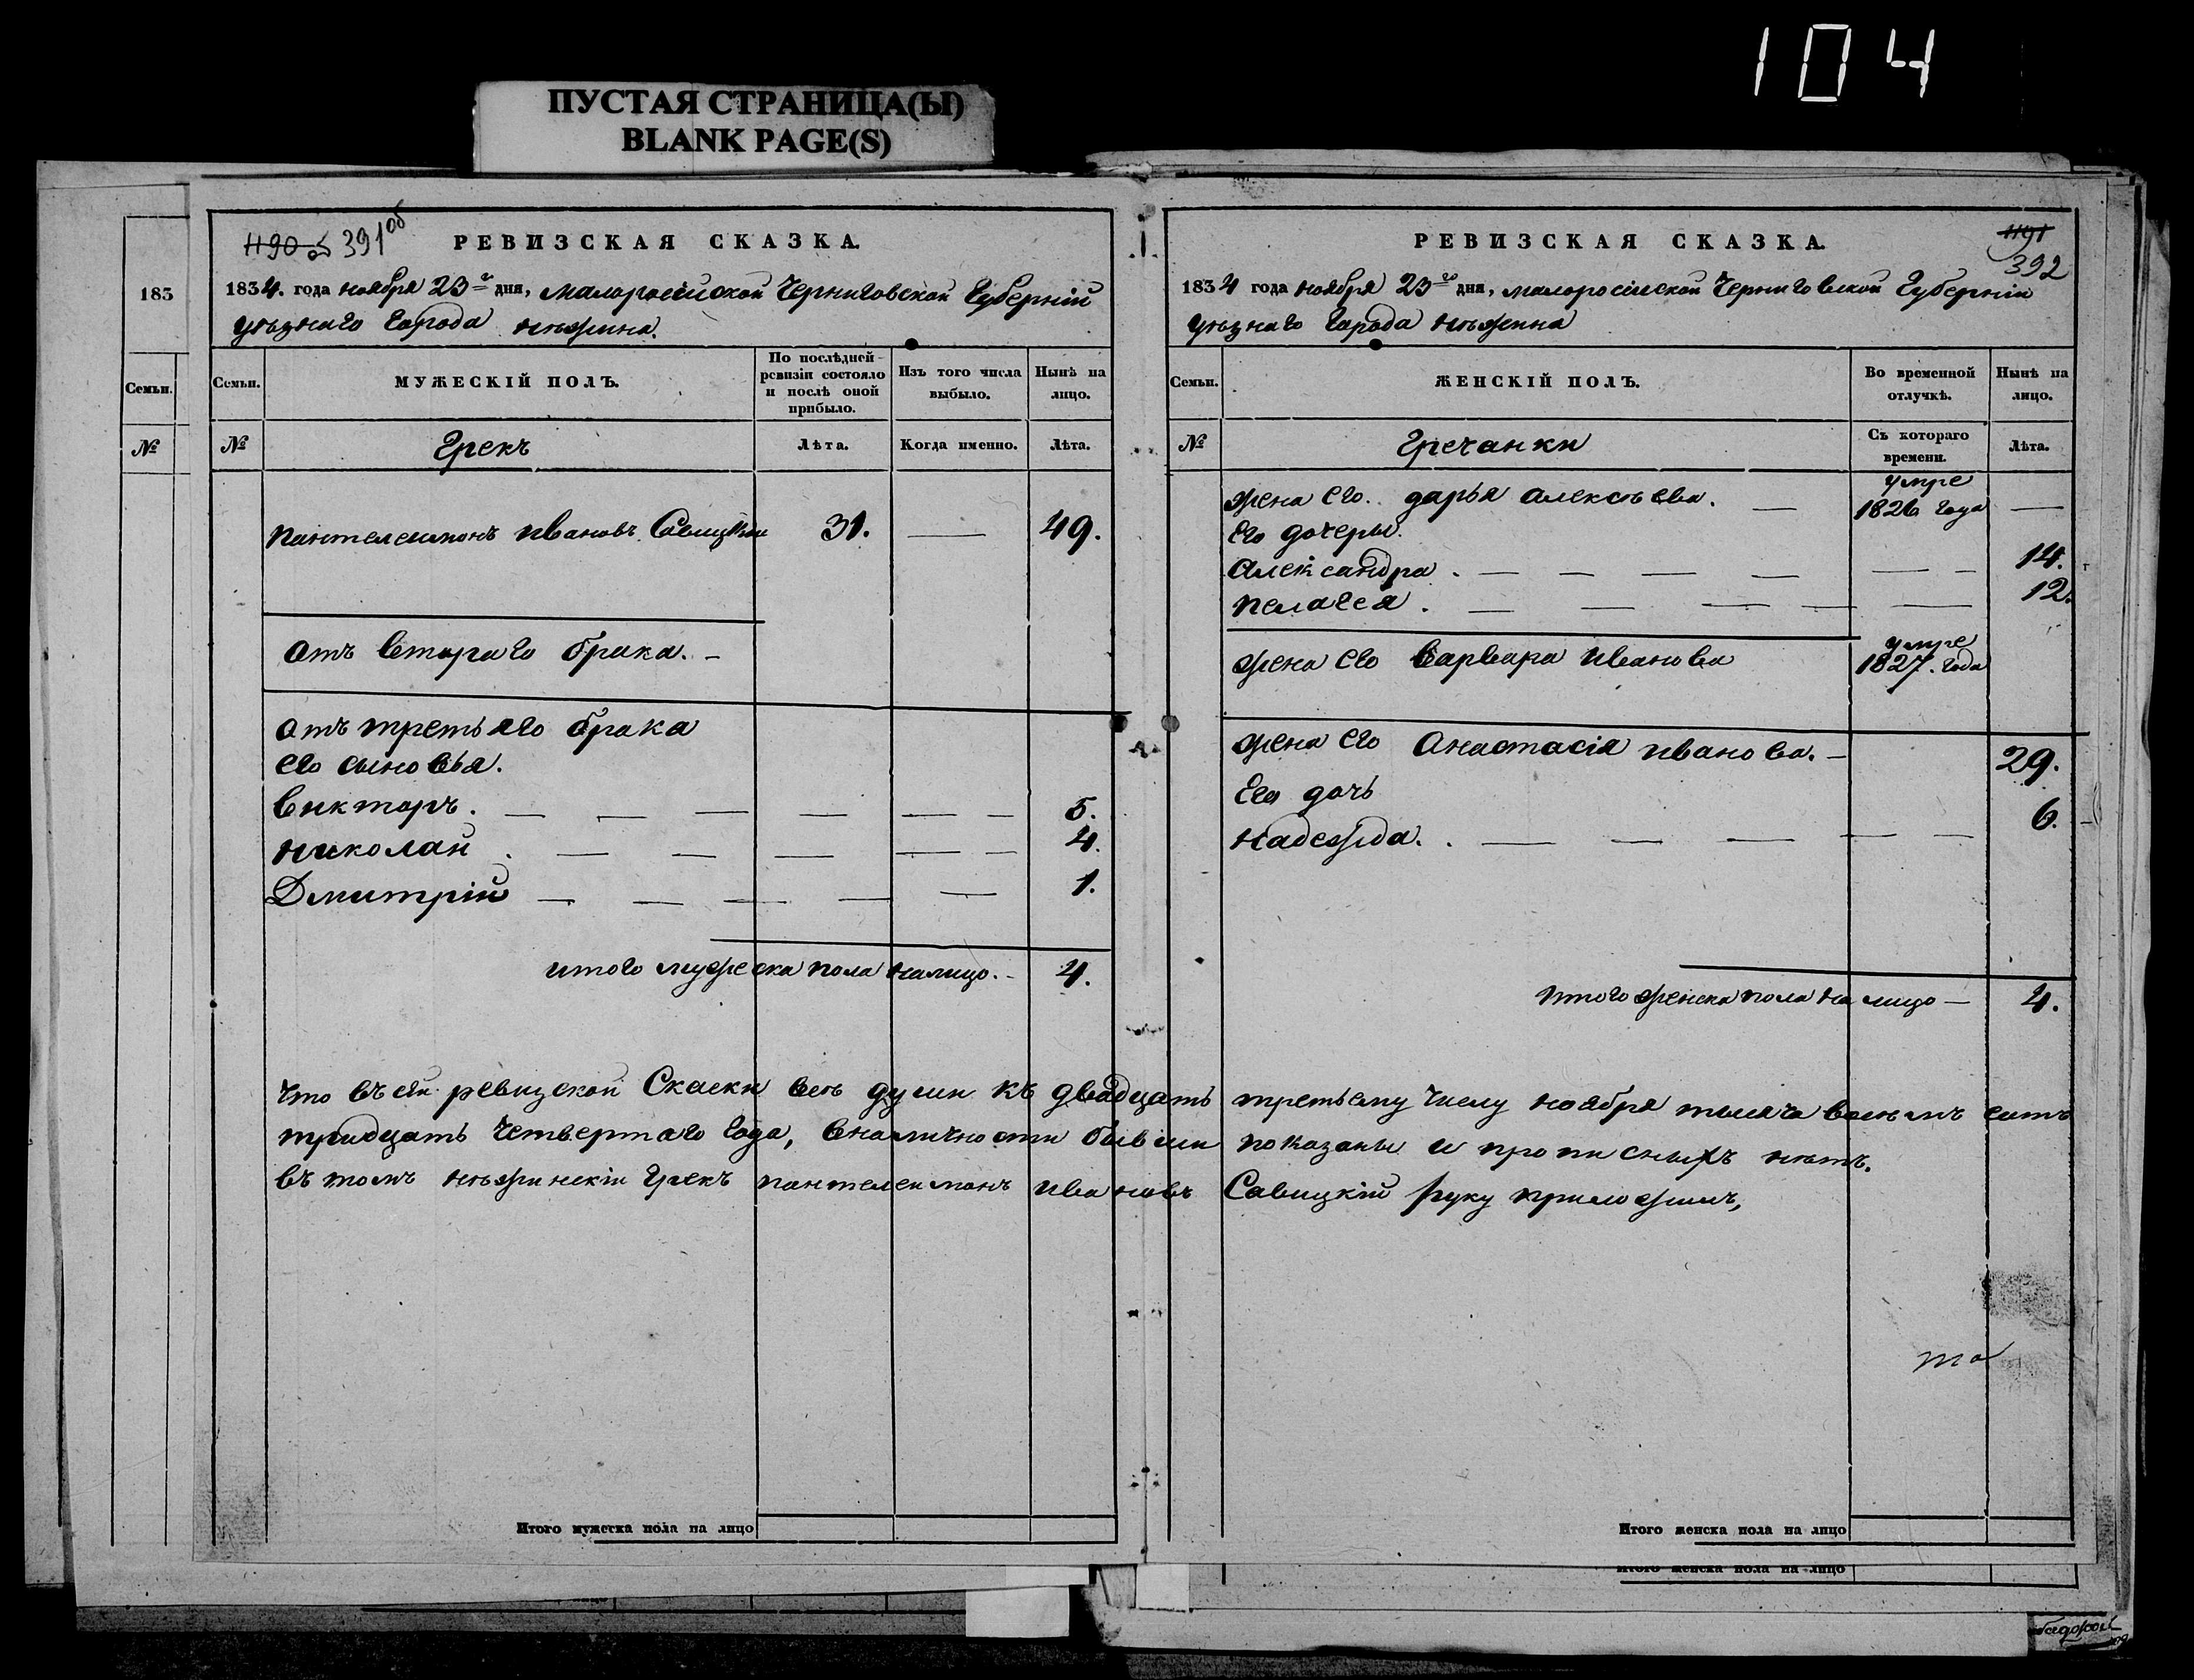 104
ПУСТАЯ СТРАНИЦА(Ы)
BLANK PAGE(S)
183
Семьи.
№
1190 391об
РЕВИЗСКАЯ СКАЗКА.
1834. года ноября 23го дня, Малоросийской Черниговской Губернiи
уѣзнаго города нѣжина.
Семьи. МУЖЕСКІЙ ПОЛЪ. По послѣдней ревизіи состояло и послѣ оной прибыло. Изъ того числа выбыло. Нынѣ на лицо.
№ Грекъ Лѣта. Когда именно. Лѣта.
пантелеимонъ ивановъ Савицкій 31. — 49.
отъ втораго брака. —
отъ третьяго брака
его сыновья.
викторъ. — — — — — — 5.
николай . — — — — — 4.
Дмитрій — — — — — 1.
итого мужеска пола налицо. — 4.
1191
392
РЕВИЗСКАЯ СКАЗКА.
1834 года ноября 23го дня, малоросійской Черниговской Губерніи
уѣзнаго города нѣжина
Семьи. ЖЕНСКІЙ ПОЛЪ. Во временной отлучкѣ. Нынѣ на лицо.
№ Гречанки Съ котораго времени. Лѣта.
жена его. дарья алексѣева. — умре 1826 года —
Его дочеры.
александра . — — — — — — 14.
пелагея . — — — — — 12.
жена его варвара иванова умре 1827. года
жена его анастасія иванова. — 29.
Его дочь
надежда. . — — — — — 6.
итого женска пола на лицо — 4.
Что въ сей ревизской Скаски всѣ души къ двадцать третьему числу ноября тысяча восемъ сотъ
тридцать четвертаго года, вналичности бывши показаны и прописныхъ нѣтъ.
въ томъ нѣжинскіи грекъ пантелеимонъ ивановъ Савицкій руку приложилъ,
та
Итого мужеска пола на лицо
Итого женска пола на лицо
Итого женска пола на лицо